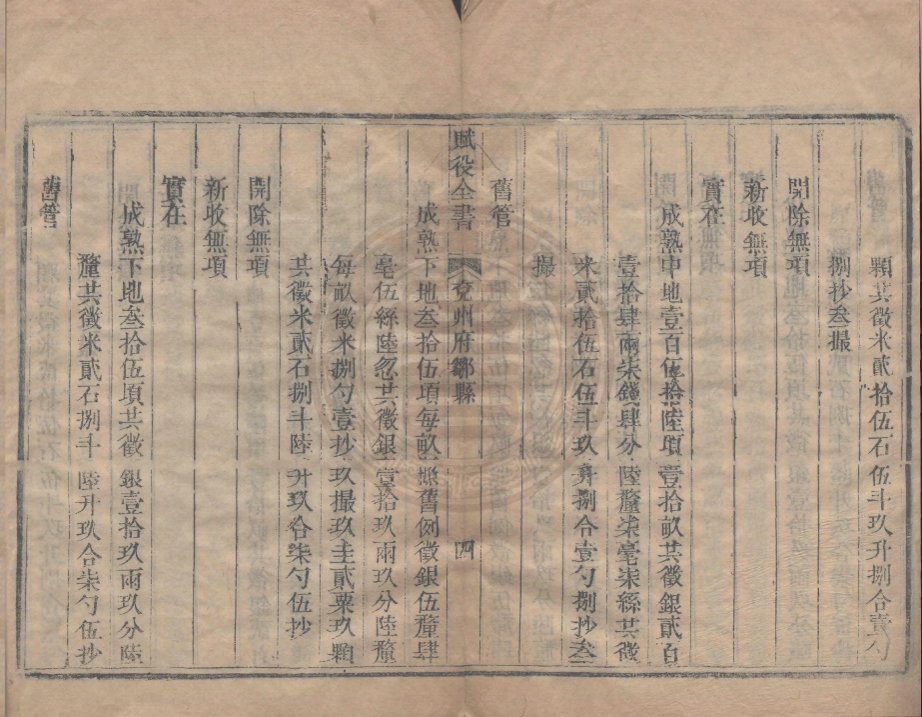 顆共徵米貳拾伍石伍斗玖升捌合壹勺
捌抄叁撮
開除無項
新收無項
實在
成熟中地壹百伍拾陸頃壹拾畝共徵銀貳百
壹拾肆兩柒錢肆分陸釐柒毫柒絲共徵
米貳拾伍石伍斗玖升捌合壹勺捌抄叁
撮
舊管
成熟下地叁拾伍頃每畝照舊例徵銀伍釐肆
賦役全書 兖州府鄒縣 四
毫伍絲陸忽共徵銀壹拾玖兩玖分陸釐
每畝徵米捌勺壹抄玖撮玖圭貳粟玖顆
共徵米貳石捌斗陸升玖合柒勺伍抄
開除無項
新收無項
實在
成熟下地叁拾伍頃共徵銀壹拾玖兩玖分陸
釐共徵米貳石捌斗陸升玖合柒勺伍抄
舊管